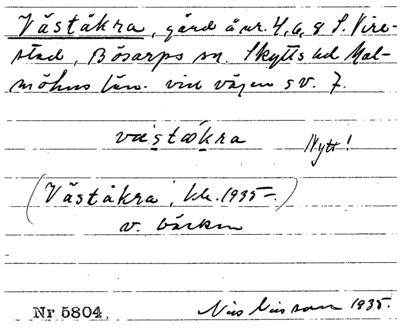 Väståkra, gård å nr. 4, 6, 8 S. Vire-
stad, Bösarps sn. Skytts hd Mal-
möhus län. vid vägen sv. 7.
väståkra
Nytt!
(Väståkra, kk. 1935-.)
v. bäcken
Nr 5804. Nils Nilsson 1935.